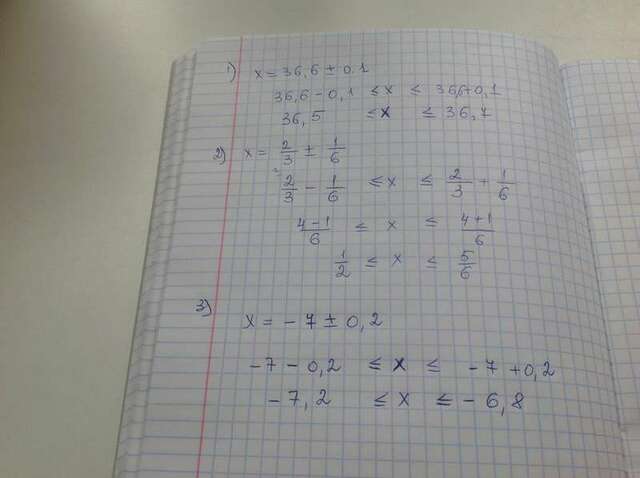 1) x = 36,6 ± 0,1
36,6 - 0,1 ≤ x ≤ 36,6+0,1
36,5 ≤ x ≤ 36,7
2) x = 2/3 ± 1/6
2/3 - 1/6 ≤ x ≤ 2/3 + 1/6
4-1/6 ≤ x ≤ 4+1/6
1/2 ≤ x ≤ 5/6
3) x = -7 ± 0,2
-7 - 0,2 ≤ x ≤ -7 + 0,2
-7,2 ≤ x ≤ -6,8